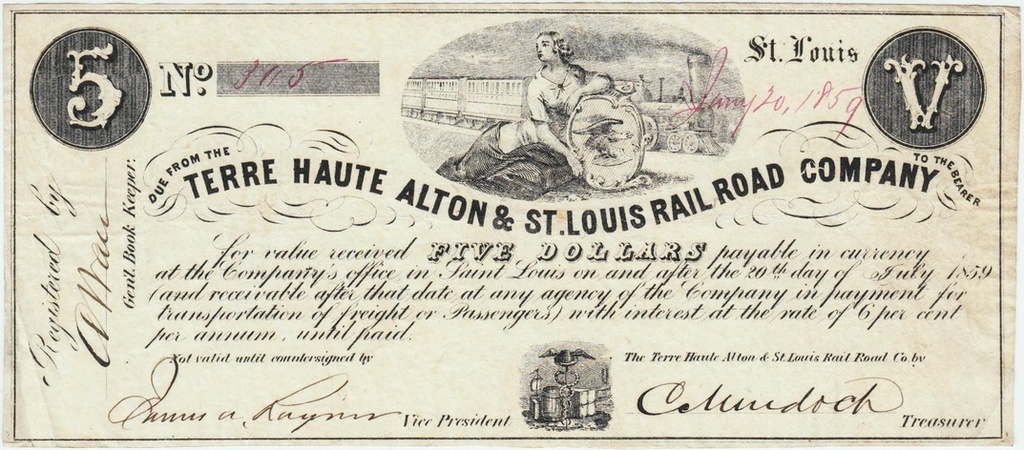 5
No. 305
St. Louis
Jany 20, 1859
V
DUE FROM THE
TERRE HAUTE ALTON & ST. LOUIS RAIL ROAD COMPANY
TO THE BEARER
for value received FIVE DOLLARS payable in currency
at the Company's office in Saint Louis on and after the 20th day of July 1859
(and receivable after that date at any agency of the Company in payment for
transportation of freight or Passengers) with interest at the rate of 6 per cent
per annum, until paid.
Registered by
Genl. Book Keeper.
Not valid until countersigned by
The Terre Haute Alton & St. Louis Rail Road Co. by
James A. Raynor Vice President
C Murdoch Treasurer